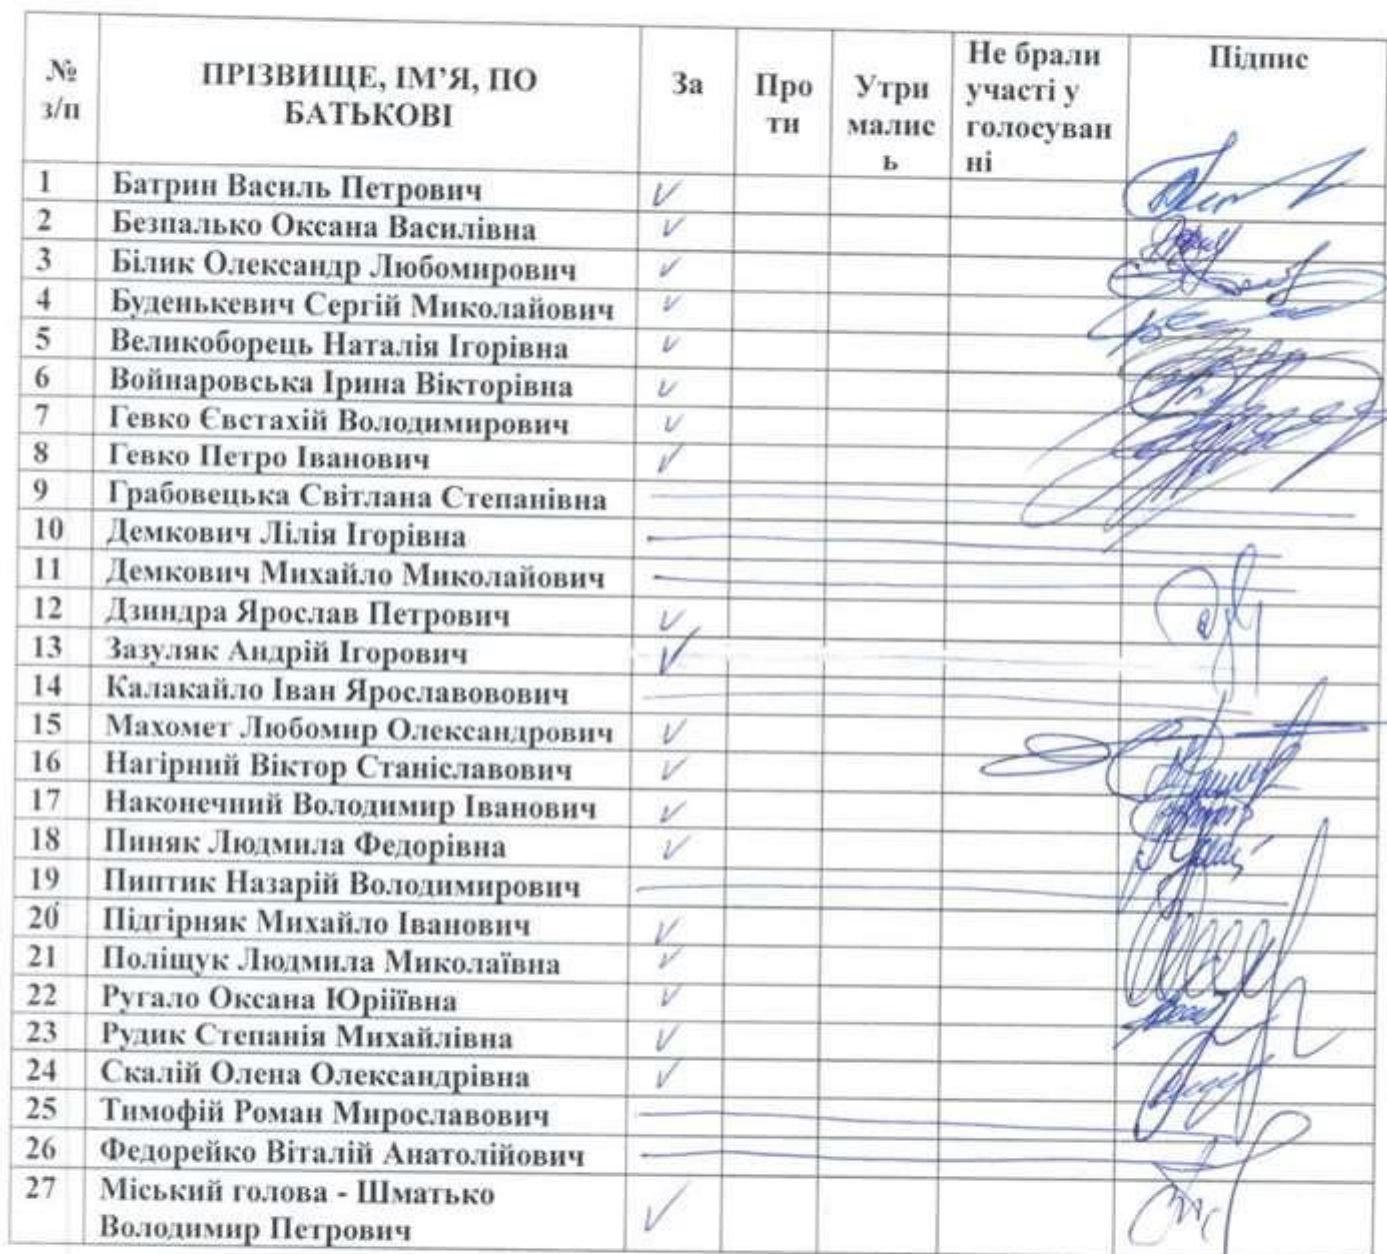 № з/п
ПРІЗВИЩЕ, ІМ’Я, ПО
БАТЬКОВІ
За
Про
ти
Утри
малис
ь
Не брали
участі у
голосуван
ні
Підпис
1 Батрин Василь Петрович ✓
2 Безпалько Оксана Василівна ✓
3 Білик Олександр Любомирович ✓
4 Буденькевич Сергій Миколайович ✓
5 Великоборець Наталія Ігорівна ✓
6 Войнаровська Ірина Вікторівна ✓
7 Гевко Євстахій Володимирович ✓
8 Гевко Петро Іванович ✓
9 Грабовецька Світлана Степанівна
10 Демкович Лілія Ігорівна
11 Демкович Михайло Миколайович
12 Дзиндра Ярослав Петрович ✓
13 Зазуляк Андрій Ігорович ✓
14 Калакайло Іван Ярославовович
15 Махомет Любомир Олександрович ✓
16 Нагірний Віктор Станіславович ✓
17 Наконечний Володимир Іванович ✓
18 Пиняк Людмила Федорівна ✓
19 Пиптик Назарій Володимирович
20 Підгірняк Михайло Іванович ✓
21 Поліщук Людмила Миколаївна ✓
22 Ругало Оксана Юріїївна ✓
23 Рудик Степанія Михайлівна ✓
24 Скалій Олена Олександрівна ✓
25 Тимофій Роман Мирославович
26 Федорейко Віталій Анатолійович
27 Міський голова - Шматько
Володимир Петрович ✓